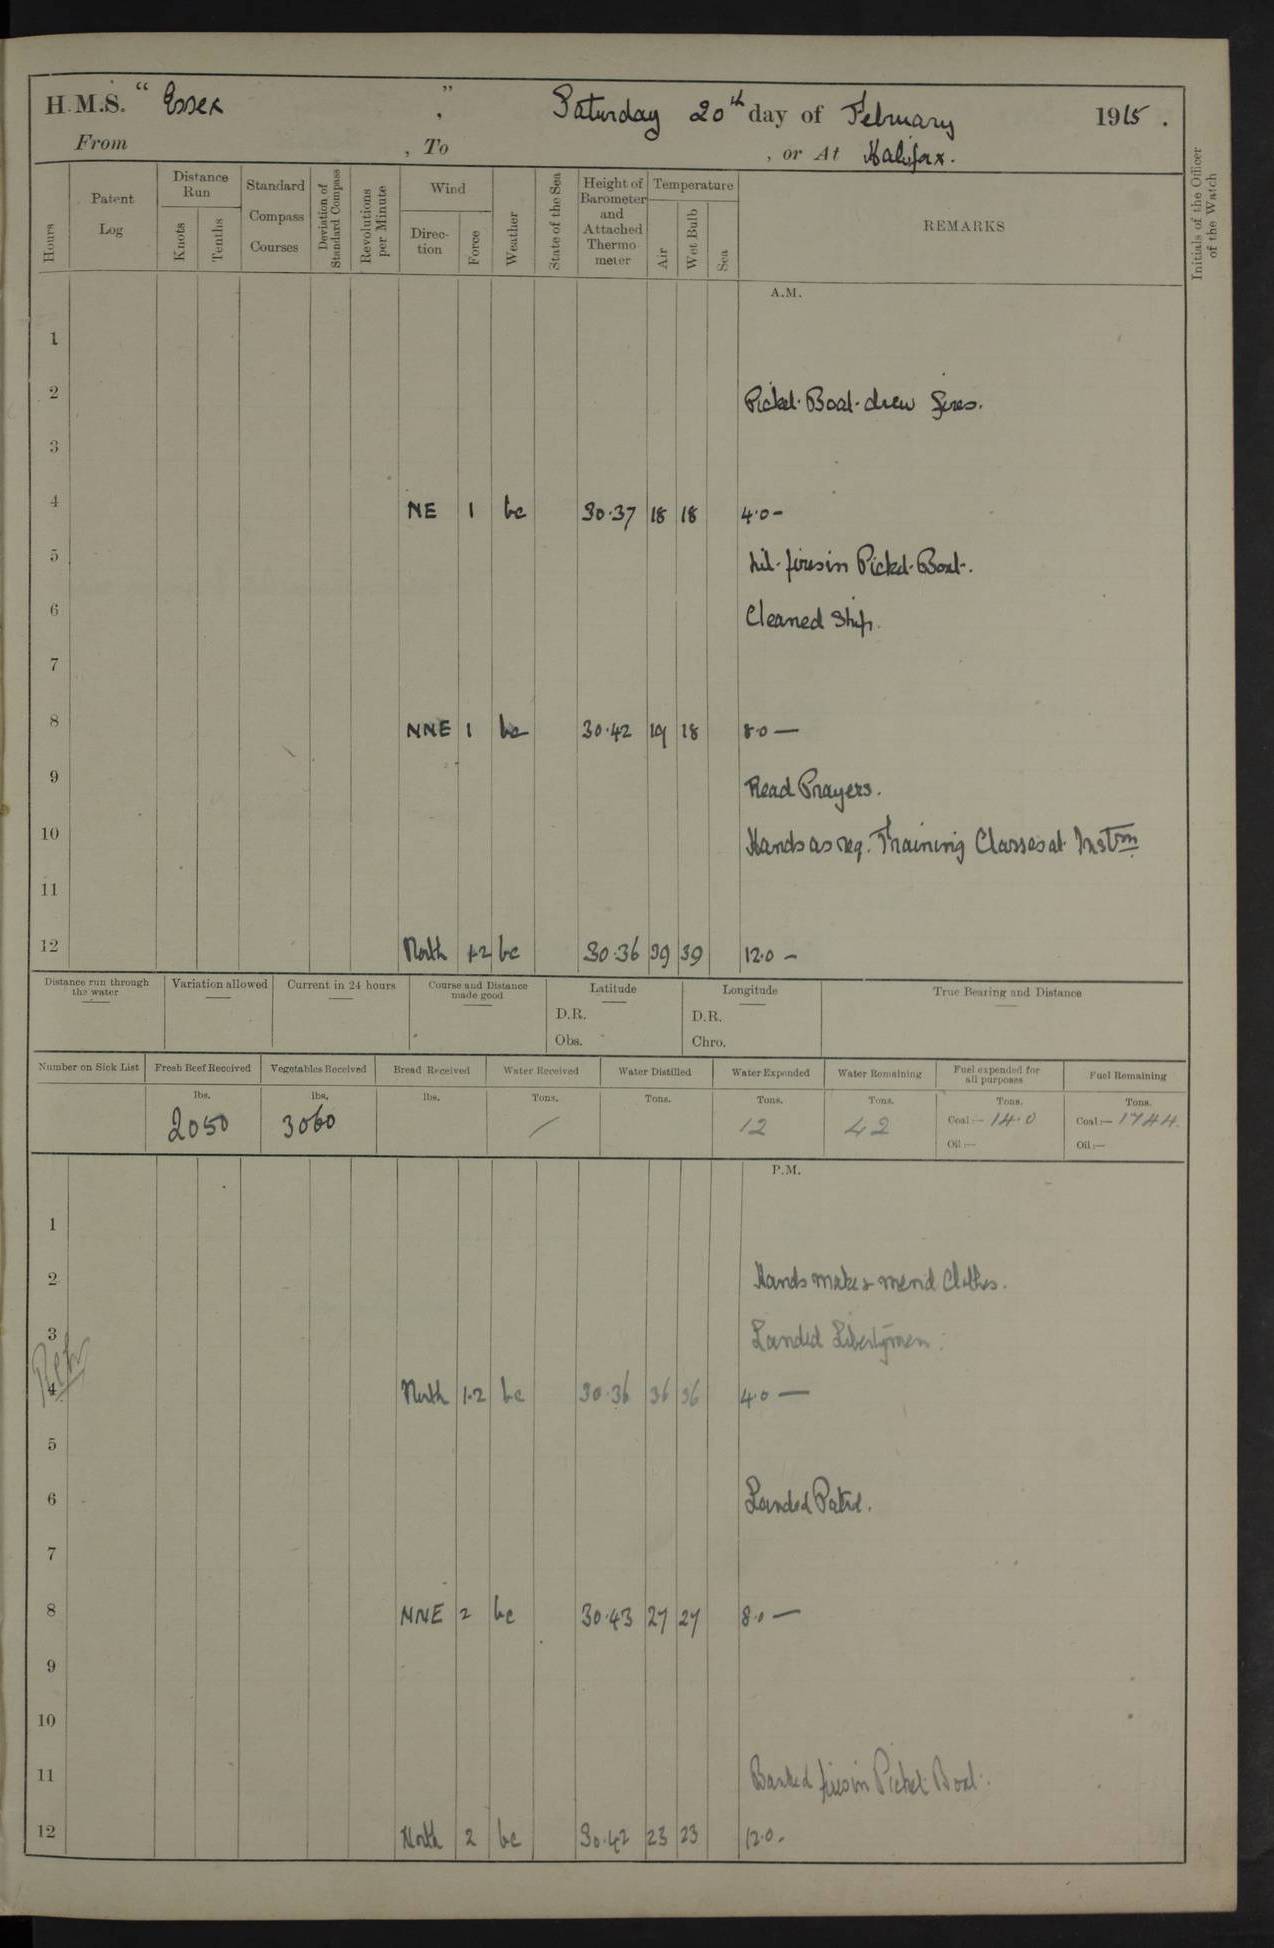 H.M.S. " Essex " , Saturday 20th day of February 1915 .
From , To , or At Halifax.
Hours
Patent Log
Distance Run
Knots
Tenths
Standard Compass Courses
Deviation of Standard Compass
Revolutions per Minute
Wind
Direc-tion
Force
Weather
State of the Sea
Height of Barometer and Attached Thermo meter
Temperature
Air
Wet Bulb
Sea
REMARKS
Initials of the Officer of the Watch
A.M.
1
2 Picket Boat drew fires.
3
4 NE 1 bc 30.37 18 18 4.0 -
5 Lit fires in Picket Boat.
6 Cleaned Ship.
7
8 NNE 1 bc 30.42 19 18 8.0 —
9 Read Prayers.
10 Hands as req. Training Classes at Instrn
11
12 North 1-2 bc 30.36 39 39 12.0 -
Distance run through the water
Variation allowed
Current in 24 hours
Course and Distance made good
Latitude
D.R.
Obs.
Longitude
D.R.
Chro.
True Bearing and Distance
Number on Sick List
Fresh Beef Received
Vegetables Received
Bread Received
Water Received
Water Distilled
Water Expended
Water Remaining
Fuel expended for all purposes
Fuel Remaining
lbs. lbs. lbs. Tons. Tons. Tons. Tons. Tons. Tons.
2050 3060 / 12 42 Coal :— 14.0 Coal :— 1744
Oil :— Oil :—
P.M.
1
2 Hands make & mend Clothes.
3 Landed Libertymen.
4 North 1.2 bc 30.36 36 36 4.0 —
5
6 Landed Patrol.
7
8 NNE 2 bc 30.43 27 27 8.0 —
9
10
11 Banked fires in Picket Boat.
12 North 2 bc 30.42 23 23 12.0.